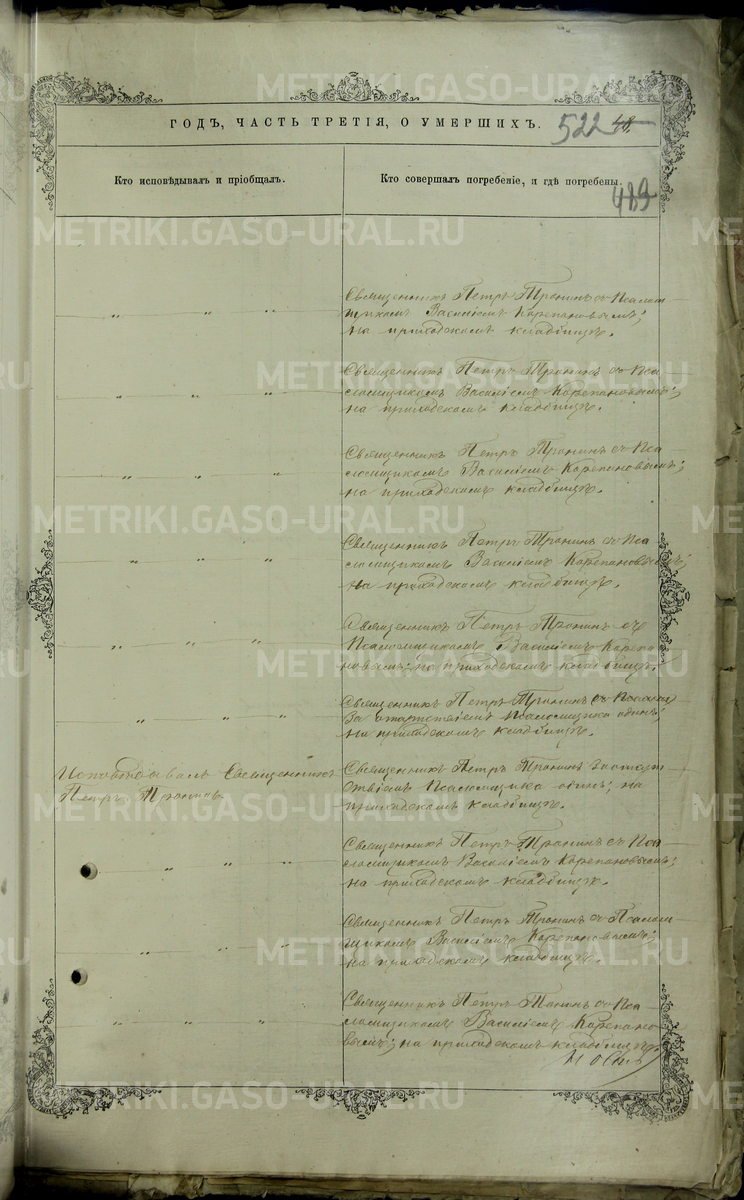 ГОДЪ, ЧАСТЬ ТРЕТІЯ, О УМЕРШИХЪ. 522 48.
Кто исповѣдывалъ и пріобщалъ. Кто совершалъ погребеніе, и гдѣ погребены.
489
Священникъ Петръ Тронинъ съ Псалом-
щикомъ Василіемъ Карепановымъ;
на приходскомъ кладбищѣ.
Священникъ Петръ Тронинъ съ Пса
ломщикомъ Василіемъ Карепановымъ;
на приходскомъ кладбищѣ.
Священникъ Петръ Тронинъ съ Пса
ломщикомъ Василіемъ Карепановымъ;
на приходскомъ кладбищѣ.
Священникъ Петръ Тронинъ съ Пса
ломщикомъ Василіемъ Карепановымъ;
на приходскомъ кладбищѣ.
Священникъ Петръ Тронинъ съ
Псаломщикомъ Василіемъ Карепа
новымъ; на приходскомъ кладбищѣ.
Священникъ Петръ Тронинъ
За отсутствіемъ Псаломщика одинъ;
на приходскомъ кладбищѣ.
Исповѣдывалъ Священникъ
Петръ Тронинъ
Священникъ Петръ Тронинъ за отсут
ствіемъ Псаломщика одинъ; на
приходскомъ кладбищѣ.
Священникъ Петръ Тронинъ съ Пса
ломщикомъ Василіемъ Карепановымъ;
на приходскомъ кладбищѣ.
Священникъ Петръ Тронинъ съ Псалом-
щикомъ Василіемъ Карепановымъ;
на приходскомъ кладбищѣ.
Священникъ Петръ Тонинъ съ Пса
ломщикомъ Василіемъ Карепано
вымъ; на приходскомъ кладбищѣ.
METRIKI.GASO-URAL.RU